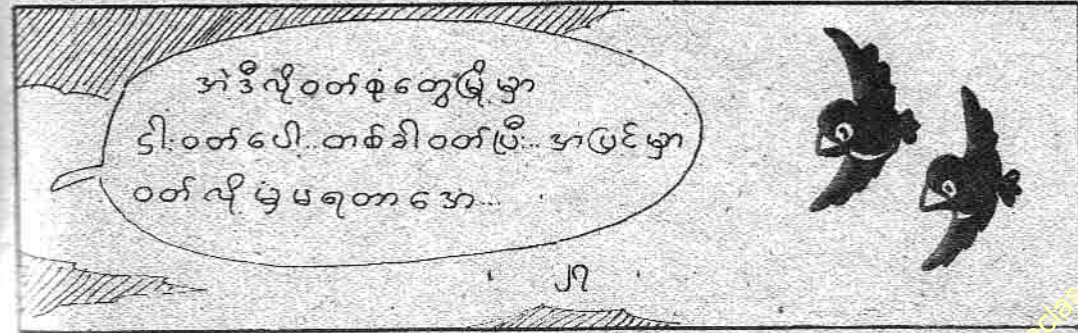 အဲဒီလိုဝတ်စုံတွေမြို့မှာ
ငှါးဝတ်ပေါ့..တစ်ခါဝတ်ပြီး..အပြင်မှာ
ဝတ်လို့မှမရတာအေ...
၂၇